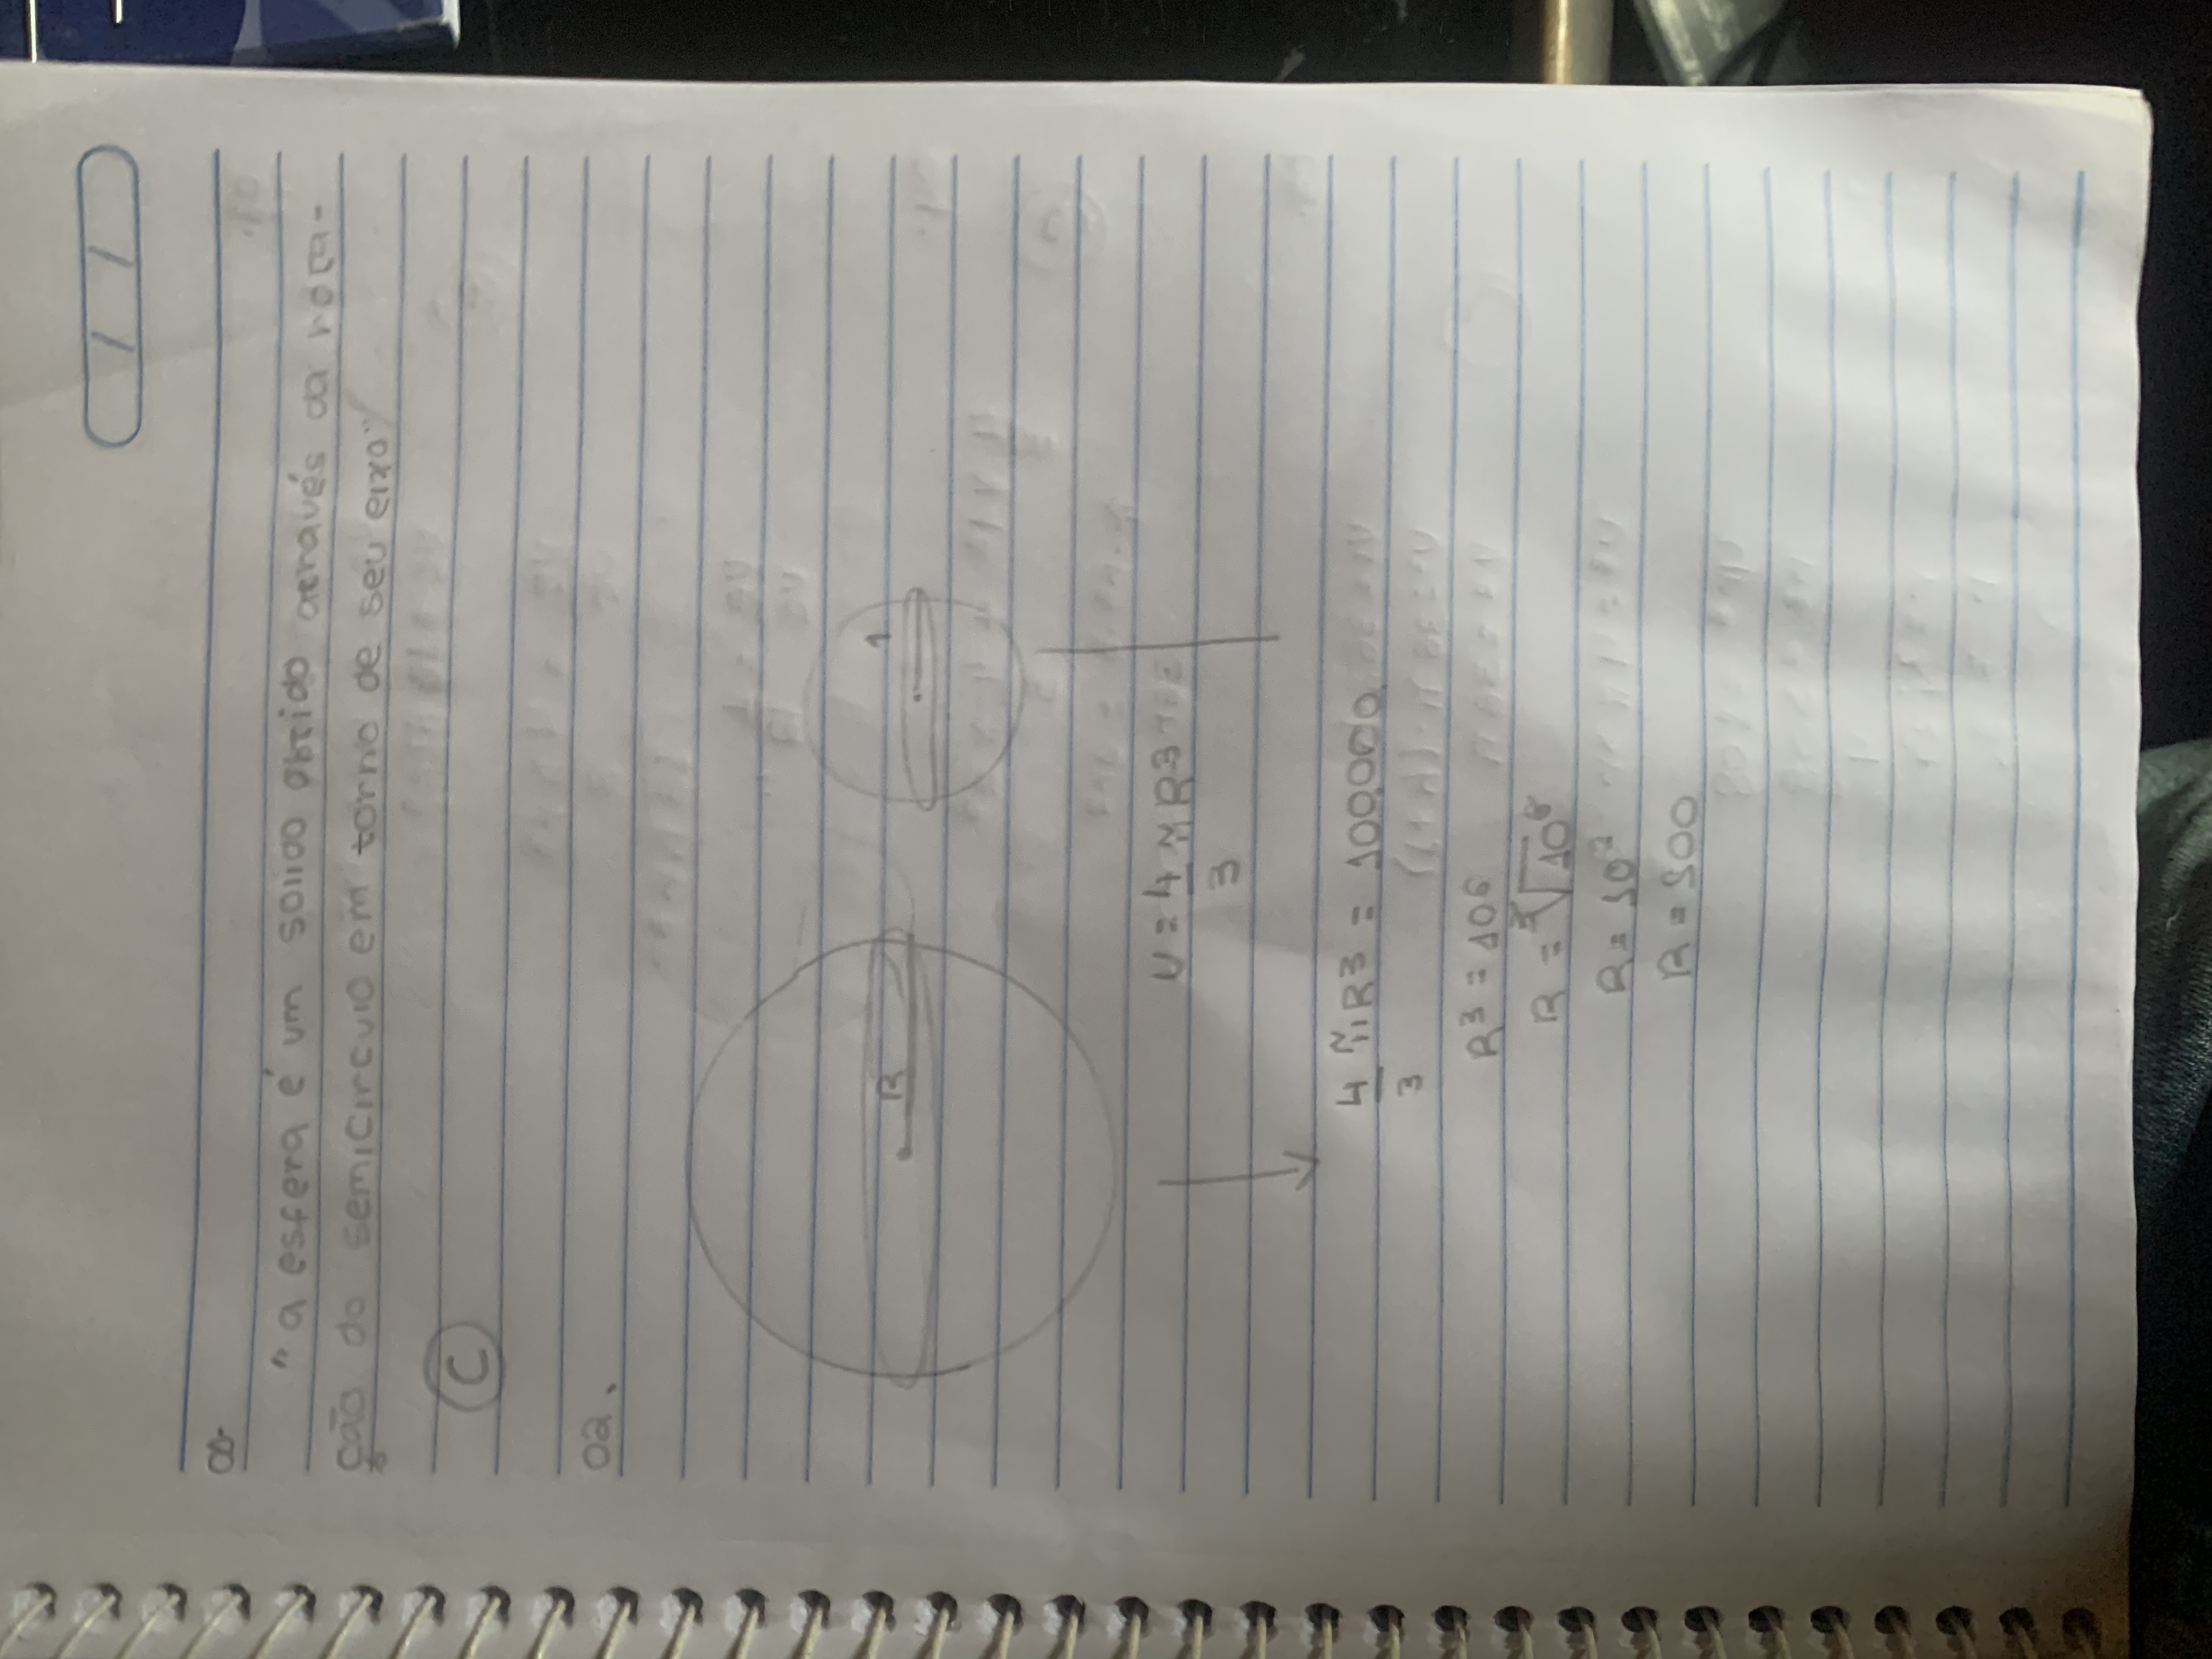 "a esfera é um solido obtido através da rota-
ção do semicirculo em torno de seu eixo"
C
02.
R
1
V = 4/3 π R³
4/3 π R³ = 100.000.
R³ = 10⁶
R = ³√10⁶
R = 10²
R = 100